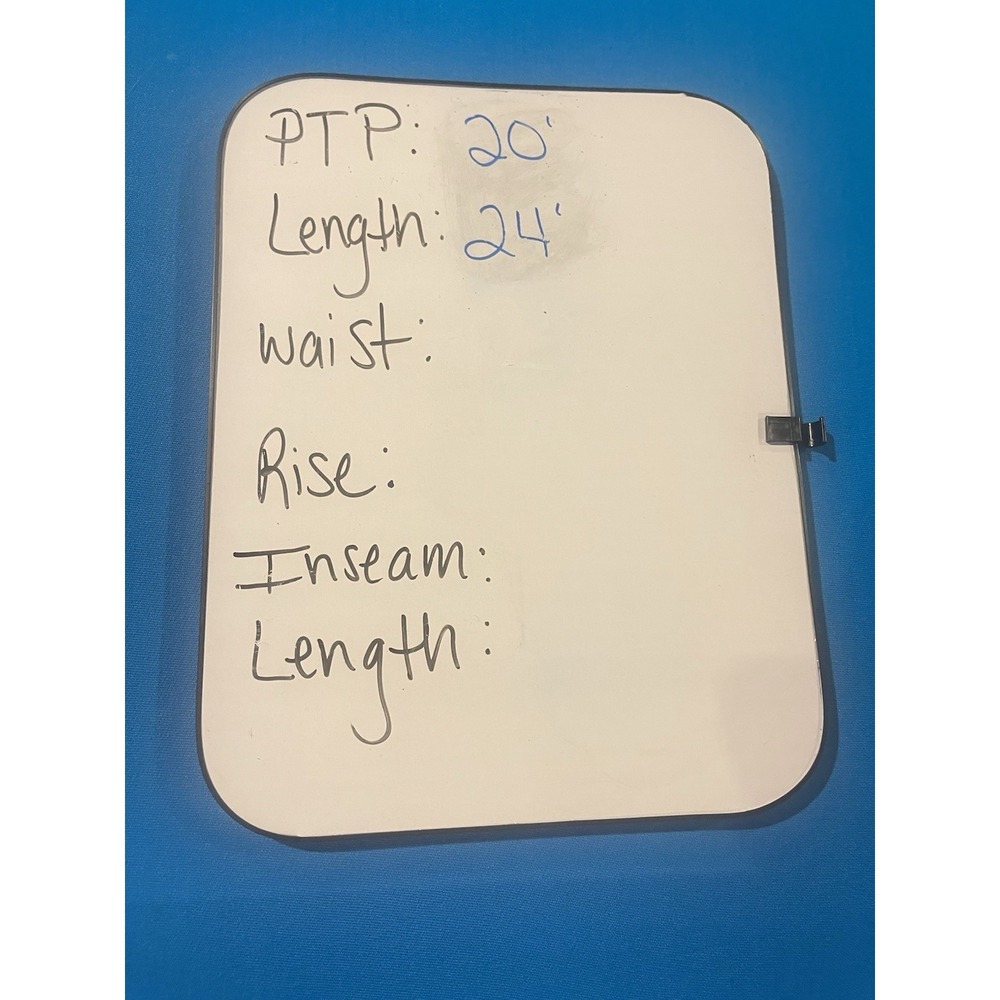 PTP: 20'
Length: 24'
waist:
Rise:
Inseam:
Length: